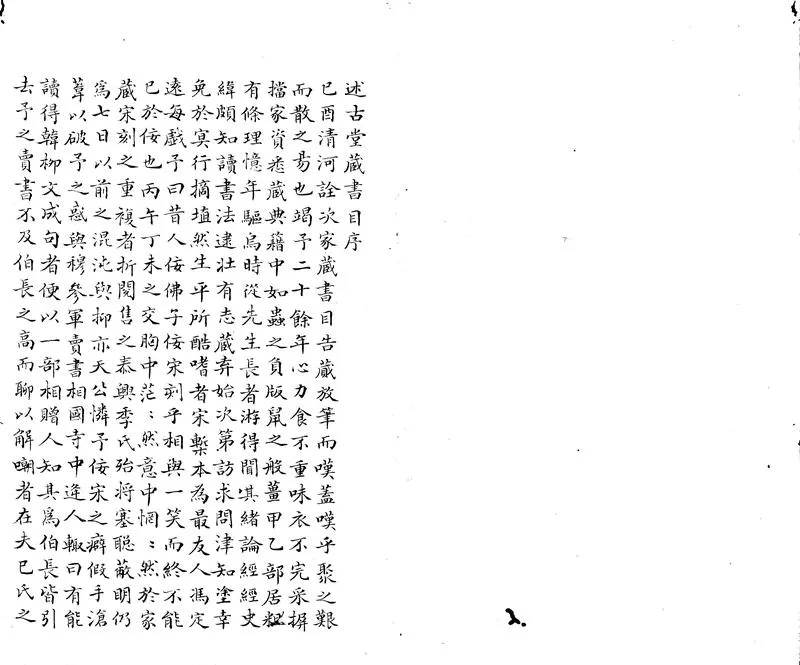 述古堂藏書目序
己酉清河詮次家藏書目告藏放筆而嘆蓋嘆乎聚之艱
而散之易也竭予二十餘年心力食不重味衣不完采摒
擋家資悉藏典籍中如蟲之負版鼠之般薑甲乙部居粗
有條理憶年驅烏時從先生長者游得聞其緒論經經史
緯頗知讀書法逮壯有志藏弆始次第訪求問津知塗幸
免於冥行摘埴然生平所酷嗜者宋槧本為最友人馮定
遠每戲予曰昔人佞佛子佞宋刻乎相與一笑而終不能
已於佞也丙午丁未之交胸中茫：然意中惘：然於家
藏宋刻之重複者折閱售之泰興季氏殆將塞聰蔽明仍
為七日以前之混沌與抑亦天公憐予佞宋之癖假手滄
葦以破予之惑與穆參軍賣書相國寺中逢人輒曰有能
讀得韓柳文成句者便以一部相贈人知其為伯長皆引
去予之賣書不及伯長之高而聊以解嘲者在夫己氏之
2.